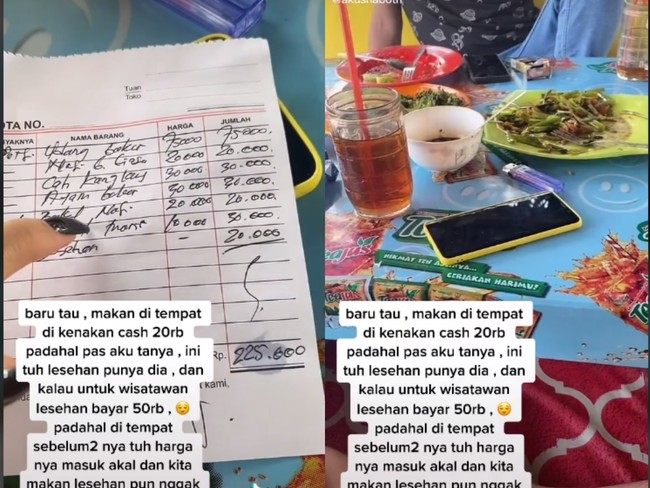 Tuan
Toko
OTA NO.
NYAKNYA NAMA BARANG HARGA JUMLAH
Udang bakar 75000 75000.
Nasi 6 20.000 20.000.
Cah kangkung 30000 30.000.
Ayam bakar 30 000 30.000.
20.000 20.000.
manis 10.000 30.000.
sehan — 20.000
Rp. 225.000
kami,
baru tau , makan di tempat
di kenakan cash 20rb
padahal pas aku tanya , ini
tuh lesehan punya dia , dan
kalau untuk wisatawan
lesehan bayar 50rb , 😔
padahal di tempat
sebelum2 nya tuh harga
nya masuk akal dan kita
makan lesehan pun nggak
erakusnaboth
Tejus
NIKMAT TEH ASLINYA
CERIAKAN HARIMU?
baru tau , makan di tempat
di kenakan cash 20rb
padahal pas aku tanya , ini
tuh lesehan punya dia , dan
kalau untuk wisatawan
lesehan bayar 50rb , 😔
padahal di tempat
sebelum2 nya tuh harga
nya masuk akal dan kita
makan lesehan pun nggak